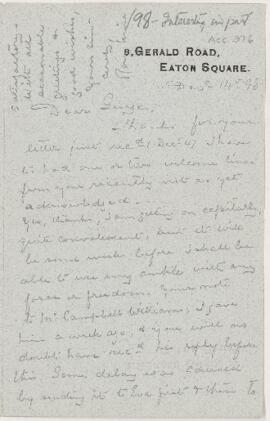 /98 - Interesting in part
Acc 376
8, GERALD ROAD,
EATON SQUARE.
Dec 14th 98
Dear George,
Thanks for your
letter just recd (Dec. 6th) I have
to had one or two welcome lines
from you recently not as yet
acknowledged.
Yes, thanks, I am getting on capitally,
quite convalescent, but it will
be some weeks before I shall be
able to use my ankle with any
force or freedom. Your note
to Mr. Campbell Williams, I gave
him a week ago, & you will no
doubt have recd his reply before
this. Some delay was caused
by sending it to Eva first & then to
satisfactory
with all
seasonable
greetings &
good wishes,
Yours